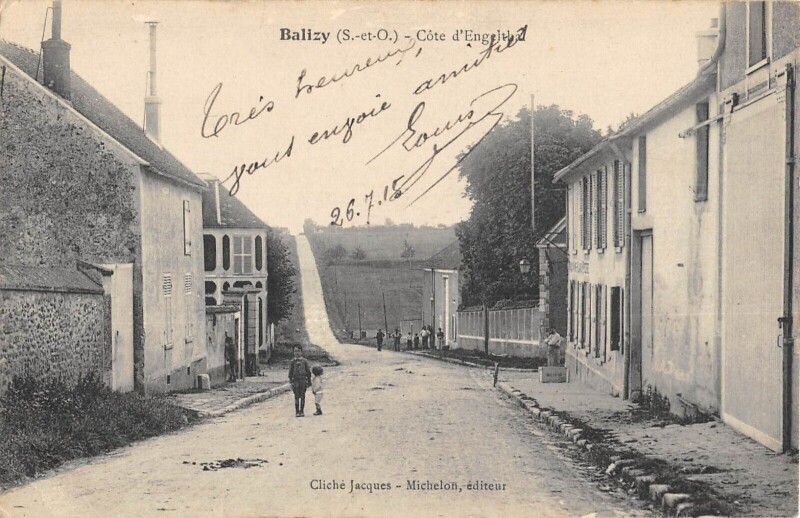 Balizy (S.-et-O.) - Côte d'Engelthal
Très heureux,
vous envoie amitiés
Louis
26.7.15
Cliché Jacques - Michelon, éditeur